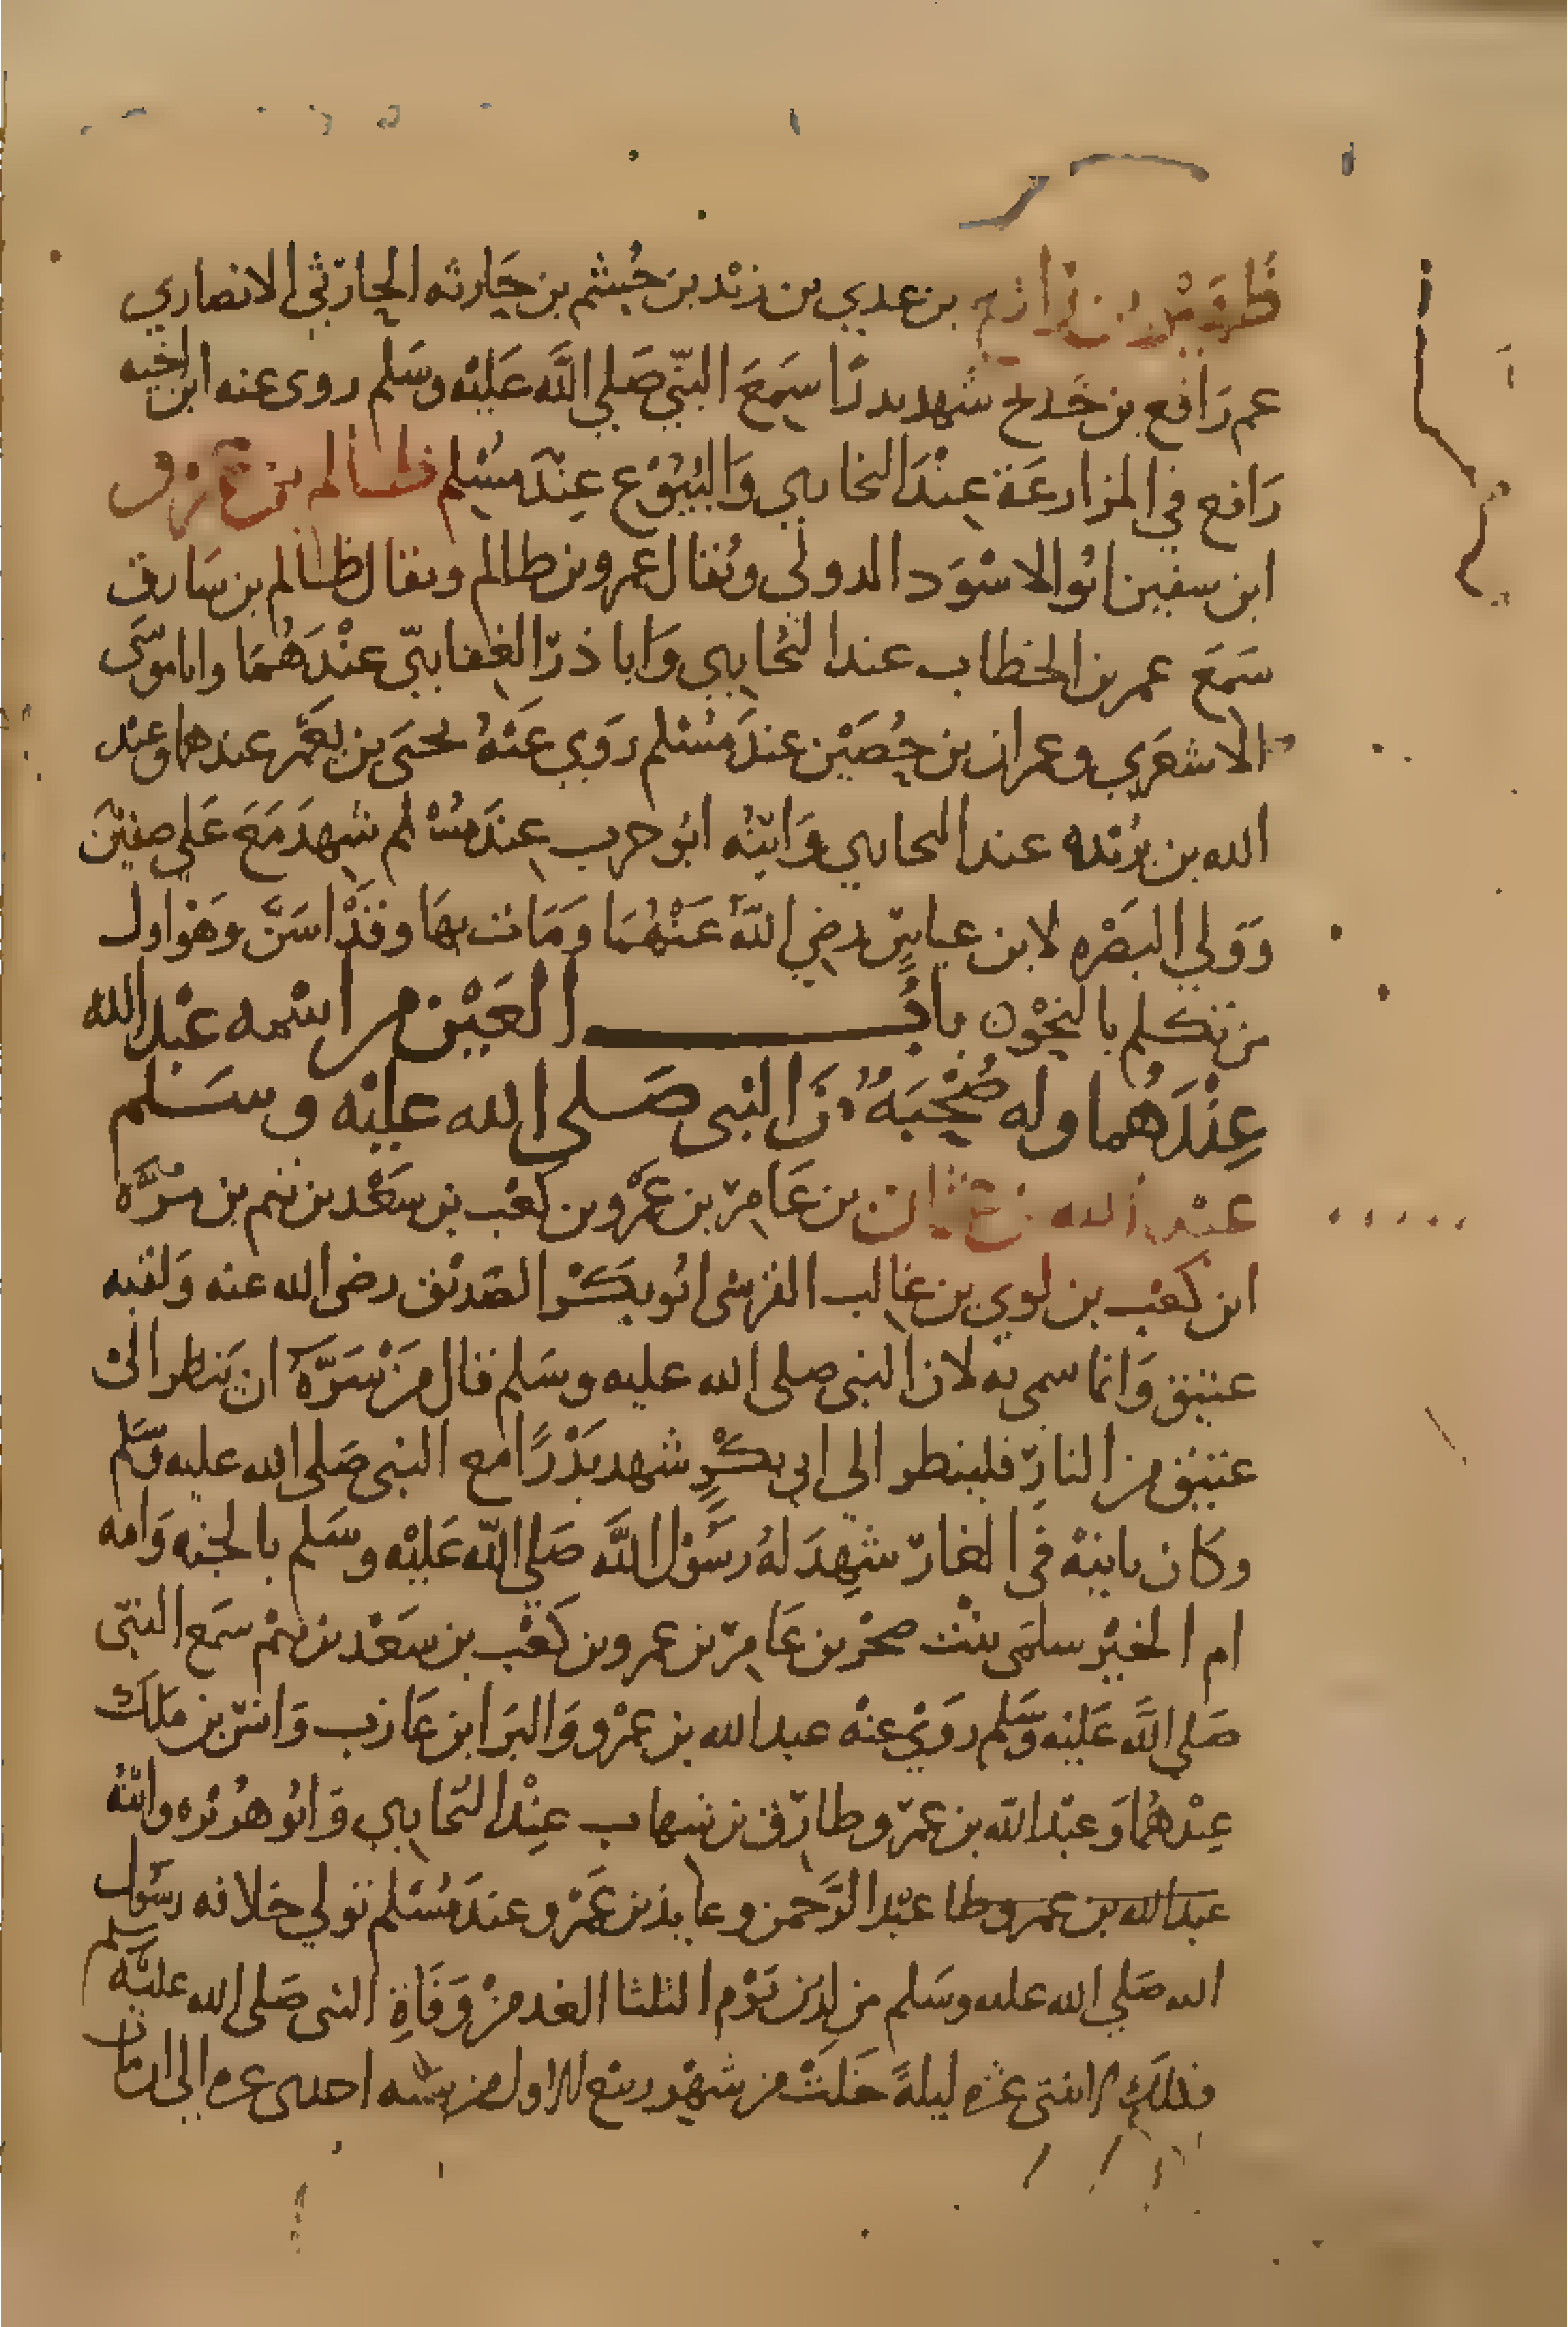 ظهير بن رافع بن عدي بن زيد بن جُشم بن حَارثه الحارثي الانصاري
عم رَافع بن خَديج شهد بدرًا سَمِعَ النبّي صَلي اللَّه عَليْه وسَلم روى عنه ابن اخيه
رَافع في المزارعَة عِنْدَ البخاري وَالبُيُوْع عِنْدَ مسْلم ظالم بن عمرو
ابن سفين ابُو الاسْوَد الدولي ويُقال عمرو بن ظالم ويقال ظالم بن سَارق
سَمعَ عمر بن الخطاب عند البُخاري وَابا ذرّ الغِفاريّ عنْدَهُمَا وابا موسَى
الاشعَري وعمران بن حُصَيْن عندَ مُسْلم روَي عَنْهُ يحيَى بن يَعمَر عندهما وعبْد
الله بن بُرَيْده عند البخاري وَابنُه ابُو حرب عِندَ مسْلم شهدَ مَعَ عَلي صفيْنَ
وَوَلي البَصْره لابن عباسٍ رضي اللَّه عَنْهُمَا وَمَات بهَا وقدْ اسَنَّ وهَوْ اول
من تكلم بالنحْو ن بابُ العَيْن من اسْمه عبْد الله
عِنْدَهُما وله صُحْبَةٌ مَنَ النبى صَلى الله عليْه وسَلم
عبْد الله بن عثمان بن عَامِرْ بن عَمْرو بن كعْب بن سَعْد بن تيم بن مُرَّه
ابن كعْب بن لوي بن غالب القرشى ابُو بكْر الصّديْق رضى الله عنه وَلقبه
عتيق وَانما سمي به لان النبى صلى الله عليه وسَلم قال مَنْ سَرَّهُ ان يَنظر الىْ
عتيق من النارْ فلينظر الي ابي بكْرٍ شهد بَدْرًا مع النبى صَلى الله عليه وسَلم
وكان ثانيَهْ في الغارْ شَهِدَ لهُ رسَوُل اللَّه صَلي اللّه عَليْه وسَلم بالجنه وَامه
ام الخيْر سلمَى بنْت صخْر بن عَامرْ بن عمرو بن كعْب بن سَعْد بن تيْم سمَع النبّى
صَلى اللَّه عَليْه وسَلم روَيْ عنْه عبد الله بن عمْرو وَالبرَا ابن عَازب وَانس بن مَلك
عِنْدهُمَا وَعبْد اللّه بن عمرْ وطارْق بن شِهاب عِنْد البُخاري وَابُو هرُيْره وابنُهُ
عبد الله بن عمرو طا عبْد الرَّحمن وعايذ بن عَمْرو عندَ مُسْلم تولي خلافه رسَوُل
الله صَلي الله عليه وسَلم من لدُن يَوْم الثلثا الغد منْ وَفَاةِ النبى صَلى الله عليْه وسلم
وذلك لاثنتى عشره ليلةً خلتْ من شهْر ربيْع الاول من سنه احدى عشره الى ان مات